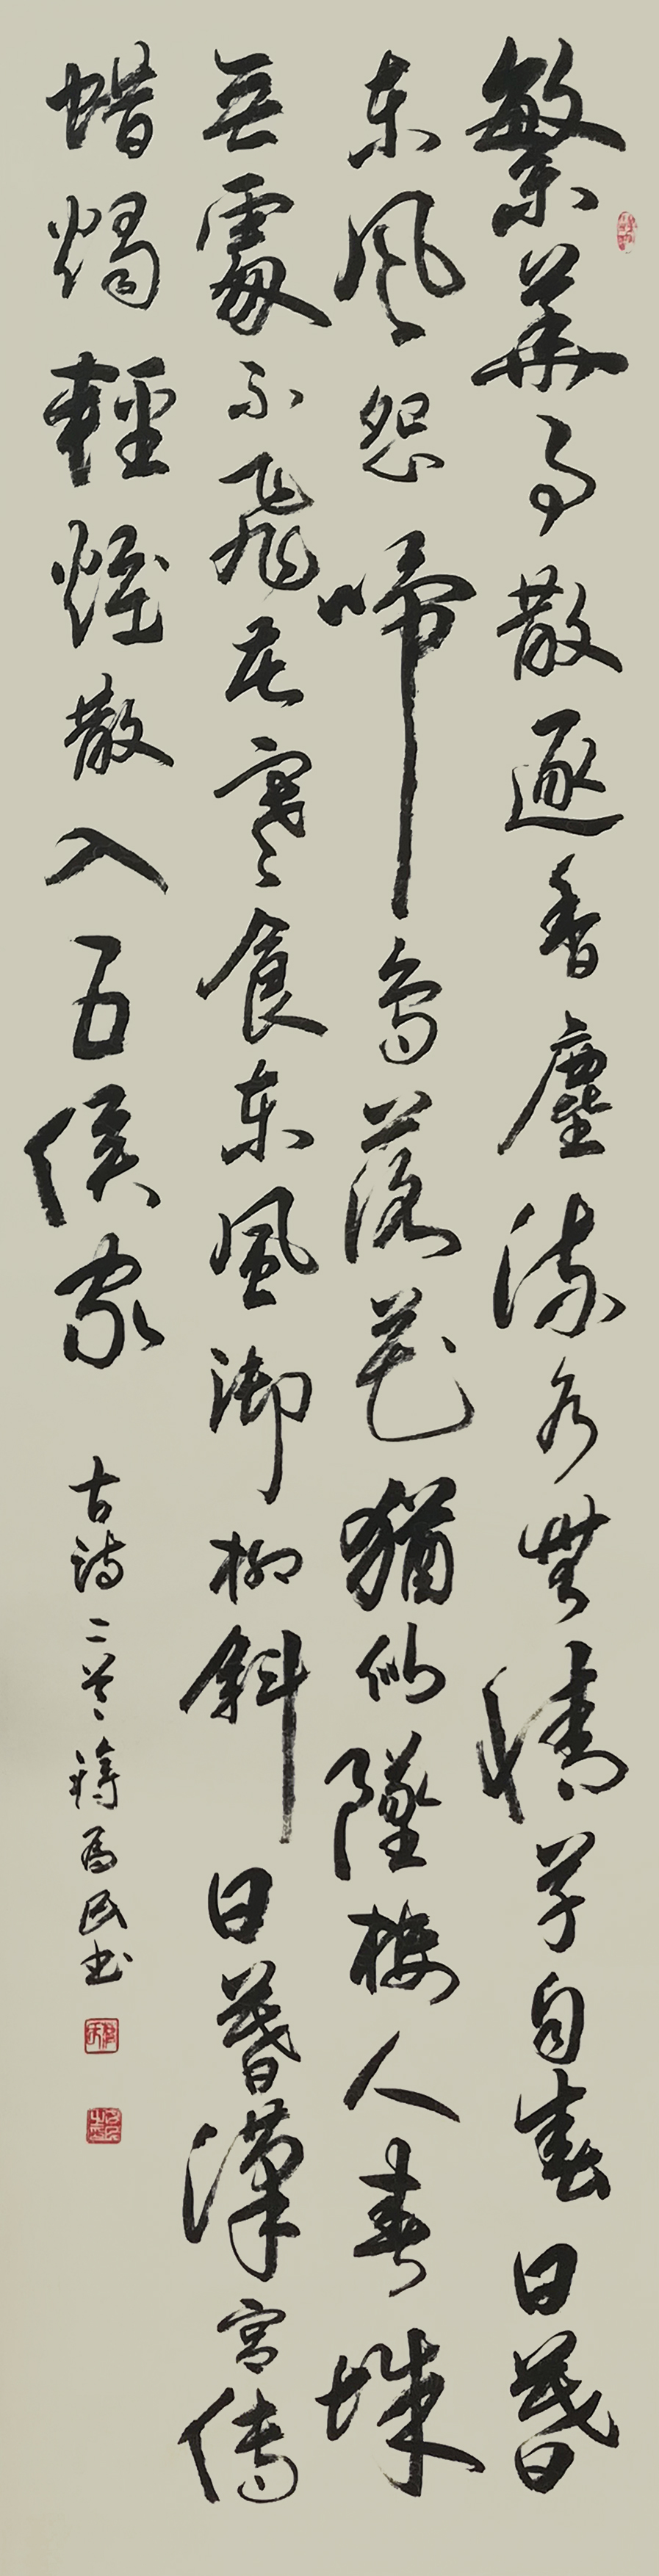 繁華事散逐香塵流水無情草自春日暮
東風怨啼鳥落花猶似墜樓人春城
無處不飛花寒食東風御柳斜日暮漢宮傳
蠟燭輕煙散入五侯家
古詩二首 蔣為民書